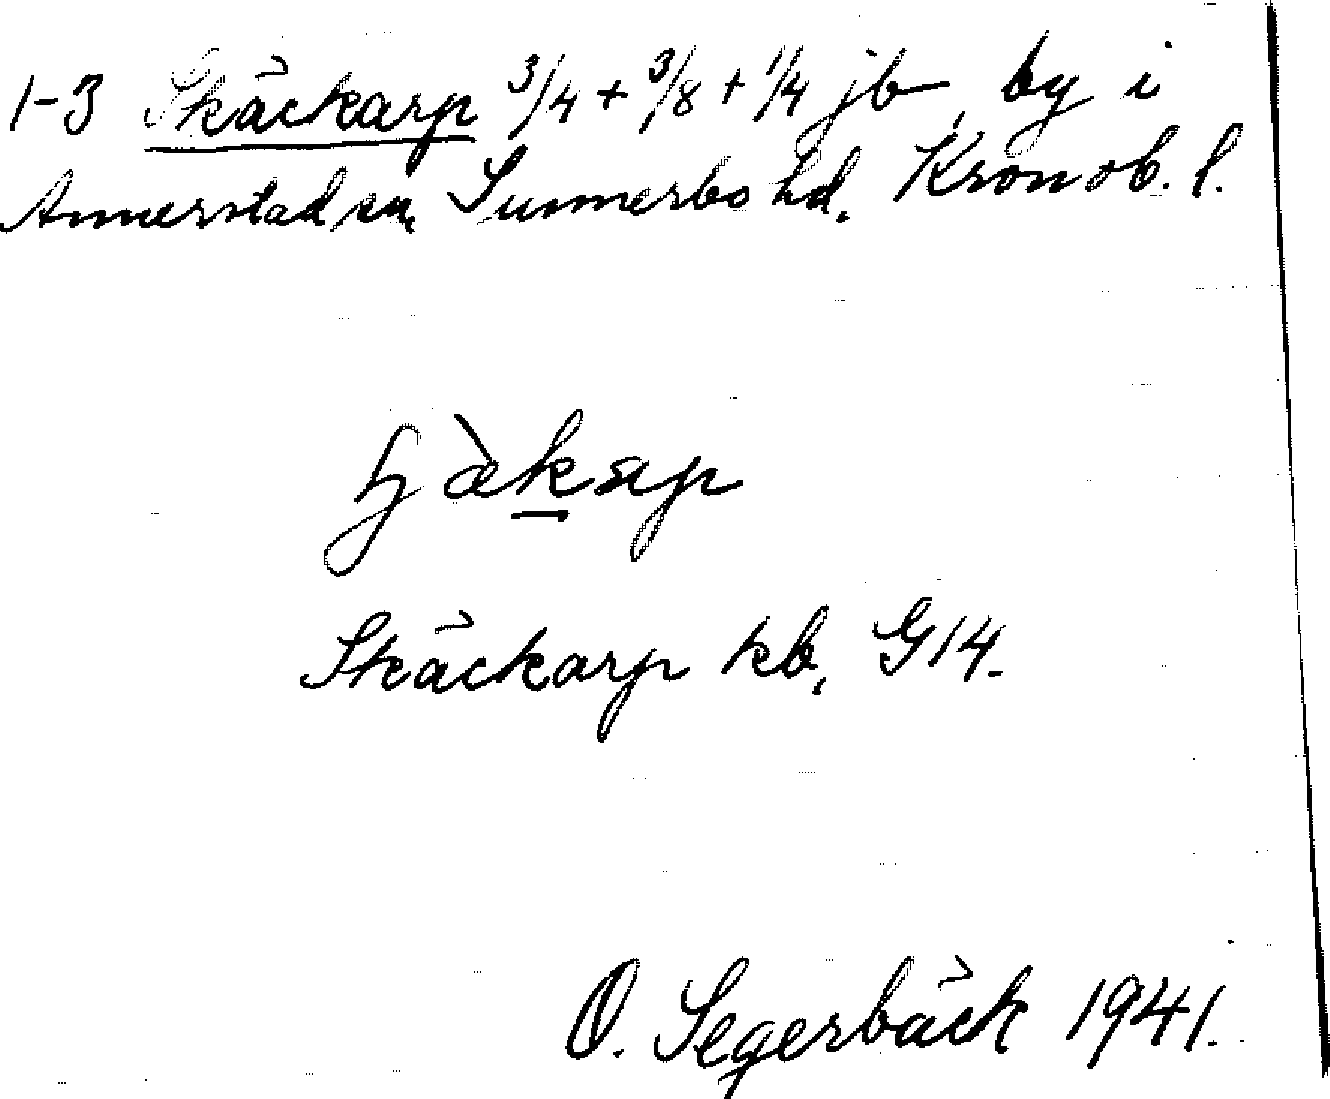 1-3 Skäckarp 3/4 + 3/8 + 1/4 jb, by i
Annerstad sn, Sunnerbo hd. Kronob. l.
Skäckarp kb, G14.
O. Segerbäck 1941.